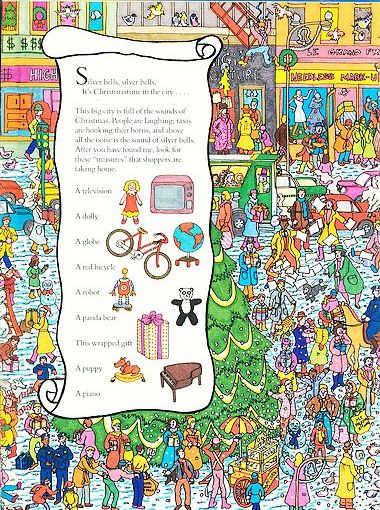 $ $ $
$ $ $ $
HIGH
LE GRAND FR
NEEDLESS MARK-U
Silver bells, silver bells,
It's Christmastime in the city . . . .
This big city is full of the sounds of
Christmas. People are laughing, taxis
are honking their horns, and above
all the noise is the sound of silver bells.
After you have found me, look for
these "treasures" that shoppers are
taking home.
A television
A dolly
A globe
A red bicycle
A robot
A panda bear
This wrapped gift
A puppy
A piano